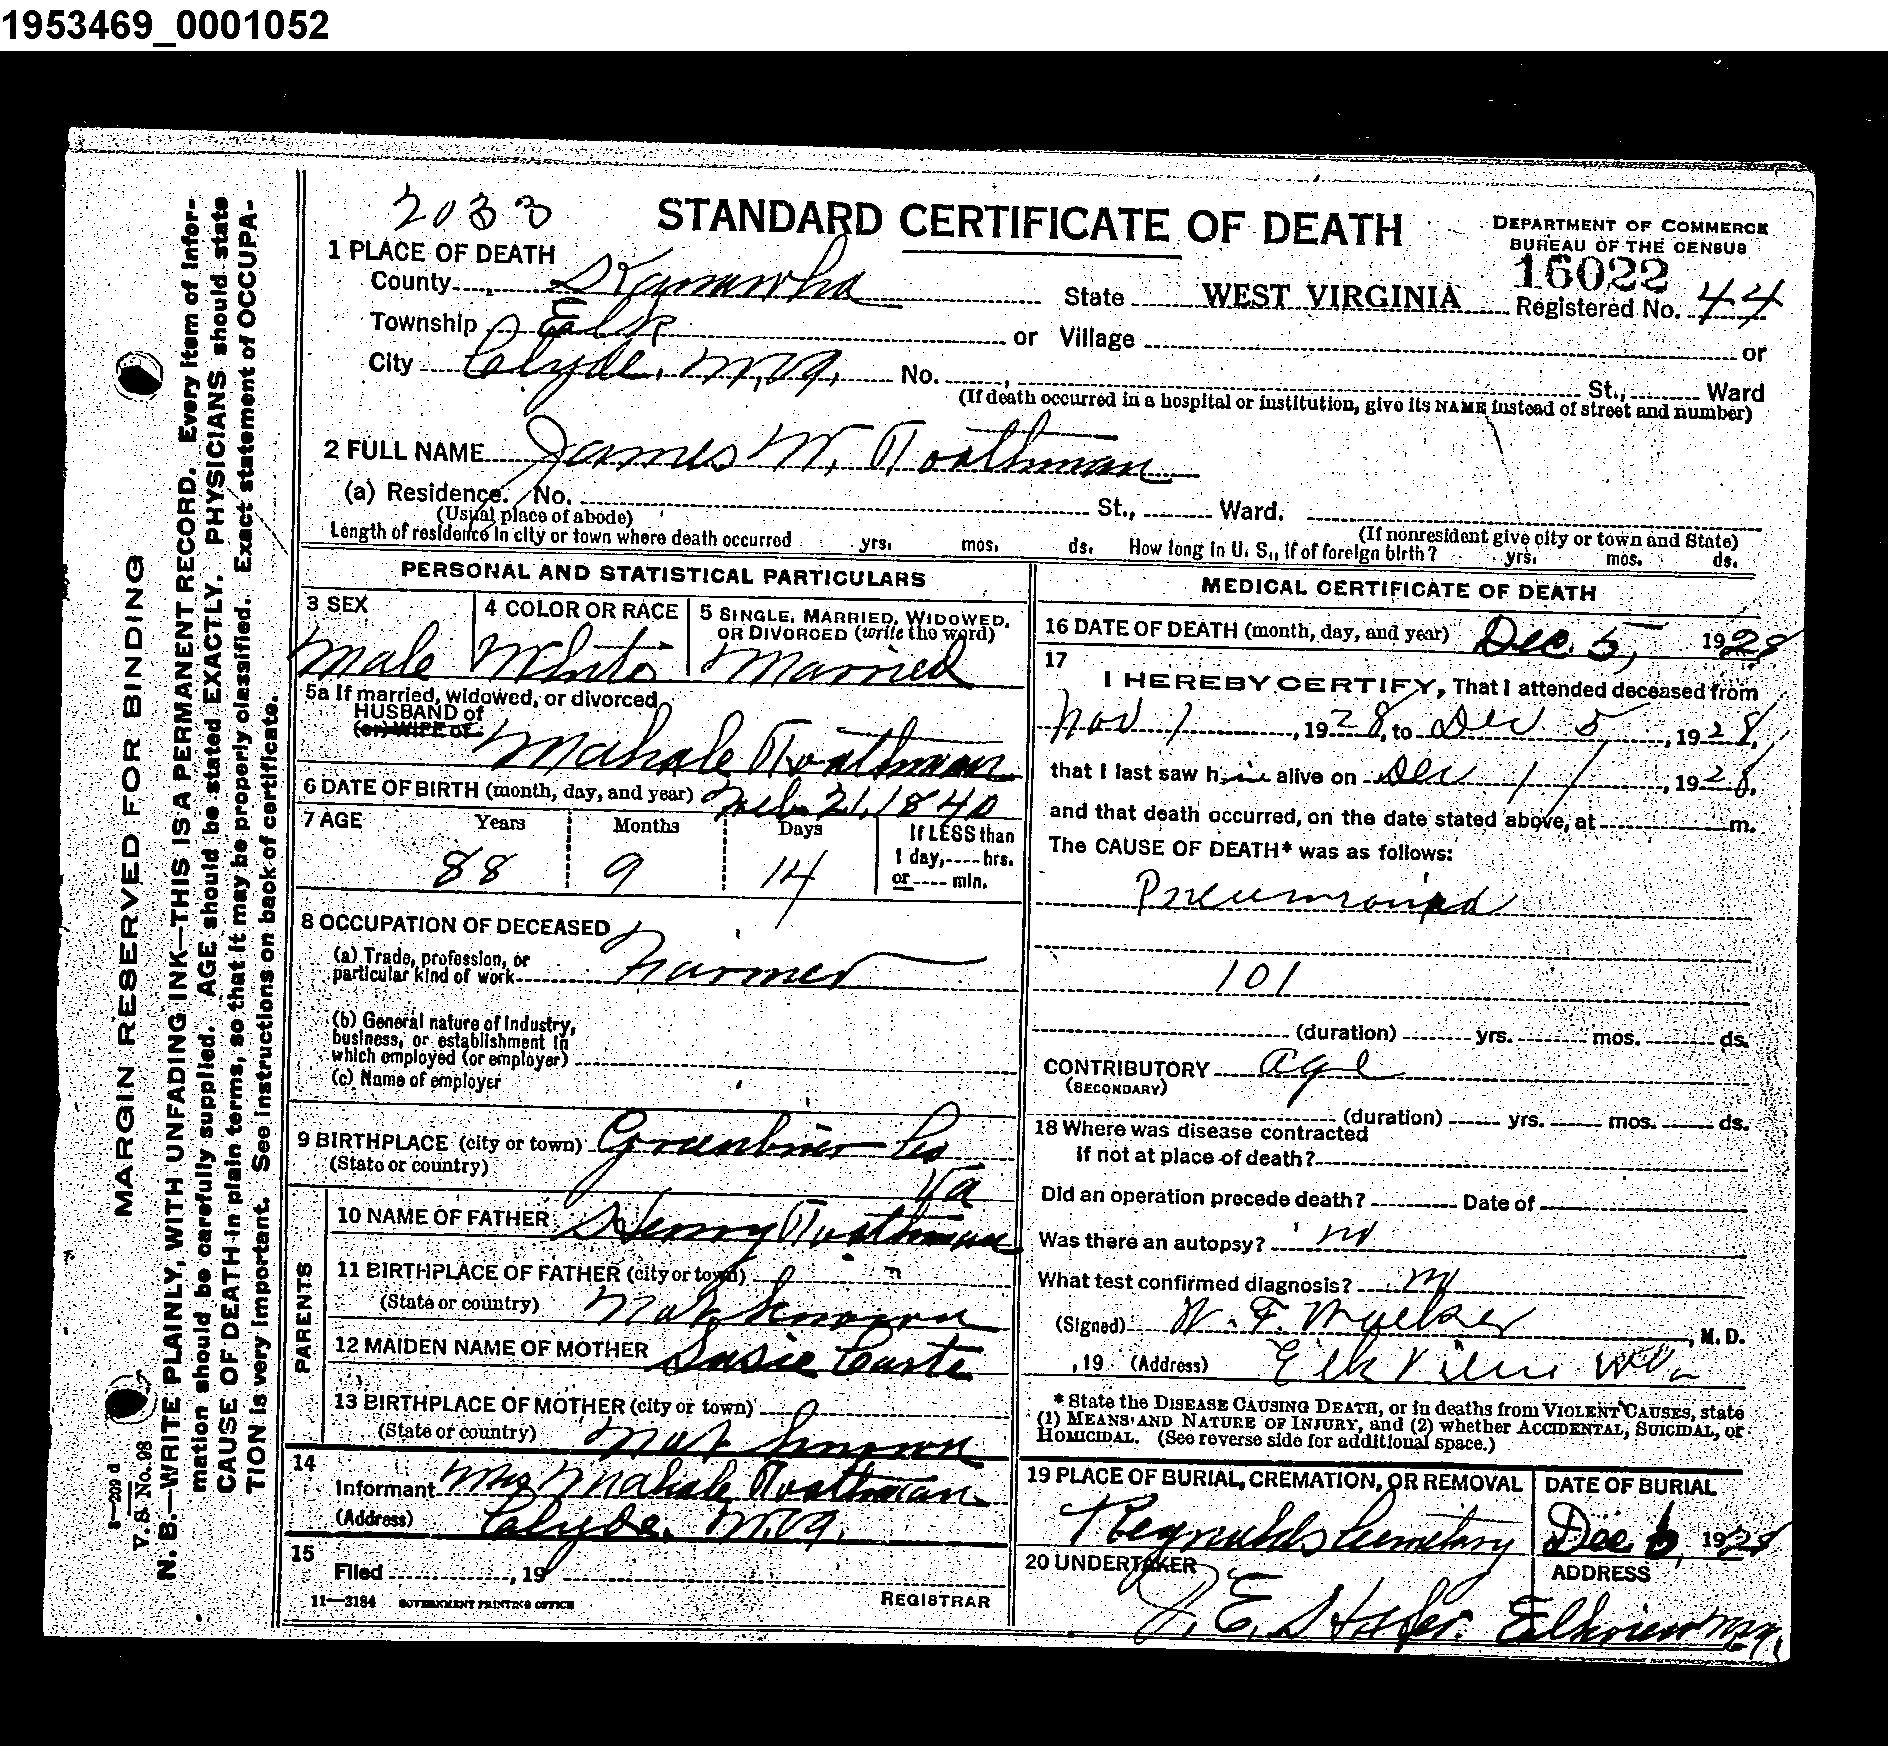 1953469_0001052
2033
STANDARD CERTIFICATE OF DEATH
DEPARTMENT OF COMMERCE
BUREAU OF THE CENSUS
1 PLACE OF DEATH
16022
County Kanawha State WEST VIRGINIA Registered No. 44
Township Elk or Village or
City Clyde, W.Va. No. St., Ward
(If death occurred in a hospital or institution, give its NAME instead of street and number)
2 FULL NAME James W.
(a) Residence. No. St., Ward.
(Usual place of abode) (If nonresident give city or town and State)
Length of residence in city or town where death occurred yrs. mos. ds. How long in U. S., if of foreign birth? yrs. mos. ds.
PERSONAL AND STATISTICAL PARTICULARS
3 SEX
Male
4 COLOR OR RACE
White
5 SINGLE, MARRIED, WIDOWED,
OR DIVORCED (write the word)
Married
5a If married, widowed, or divorced
HUSBAND of
(or) WIFE of
Mahale
6 DATE OF BIRTH (month, day, and year) Feb 21, 1840
7 AGE Years Months Days If LESS than
1 day,----hrs.
or ---- min.
88 9 14
8 OCCUPATION OF DECEASED
(a) Trade, profession, or
particular kind of work Farmer
(b) General nature of industry,
business, or establishment in
which employed (or employer)
(c) Name of employer
9 BIRTHPLACE (city or town) Greenbrier Co
(State or country) Va
PARENTS
10 NAME OF FATHER Henry
11 BIRTHPLACE OF FATHER (city or town)
(State or country) Not known
12 MAIDEN NAME OF MOTHER Susie Carte
13 BIRTHPLACE OF MOTHER (city or town)
(State or country) Not known
14
Informant Mrs Mahale
(Address) Clyde, W.Va.
15
Filed , 19
REGISTRAR
11—3184 GOVERNMENT PRINTING OFFICE
MEDICAL CERTIFICATE OF DEATH
16 DATE OF DEATH (month, day, and year) Dec. 5, 1928
17
I HEREBY CERTIFY, That I attended deceased from
Nov 1, 1928, to Dec 5, 1928,
that I last saw him alive on Dec 1, 1928,
and that death occurred, on the date stated above, at m.
The CAUSE OF DEATH* was as follows:
Pneumonia
101
(duration) yrs. mos. ds.
CONTRIBUTORY age
(SECONDARY)
(duration) yrs. mos. ds.
18 Where was disease contracted
if not at place of death?
Did an operation precede death? Date of
Was there an autopsy? no
What test confirmed diagnosis? no
(Signed) W. F. , M. D.
, 19 (Address) Elk View W Va
* State the DISEASE CAUSING DEATH, or in deaths from VIOLENT CAUSES, state
(1) MEANS AND NATURE OF INJURY, and (2) whether ACCIDENTAL, SUICIDAL, or
HOMICIDAL. (See reverse side for additional space.)
19 PLACE OF BURIAL, CREMATION, OR REMOVAL
Reynolds Cemetary
DATE OF BURIAL
Dec 6, 1928
20 UNDERTAKER
J. E.
ADDRESS
Elkview W.Va.
MARGIN RESERVED FOR BINDING
N. B.—WRITE PLAINLY, WITH UNFADING INK—THIS IS A PERMANENT RECORD. Every item of infor-
mation should be carefully supplied. AGE should be stated EXACTLY. PHYSICIANS should state
CAUSE OF DEATH in plain terms, so that it may be properly classified. Exact statement of OCCUPA-
TION is very important. See instructions on back of certificate.
8—209 d
V. S. No. 98